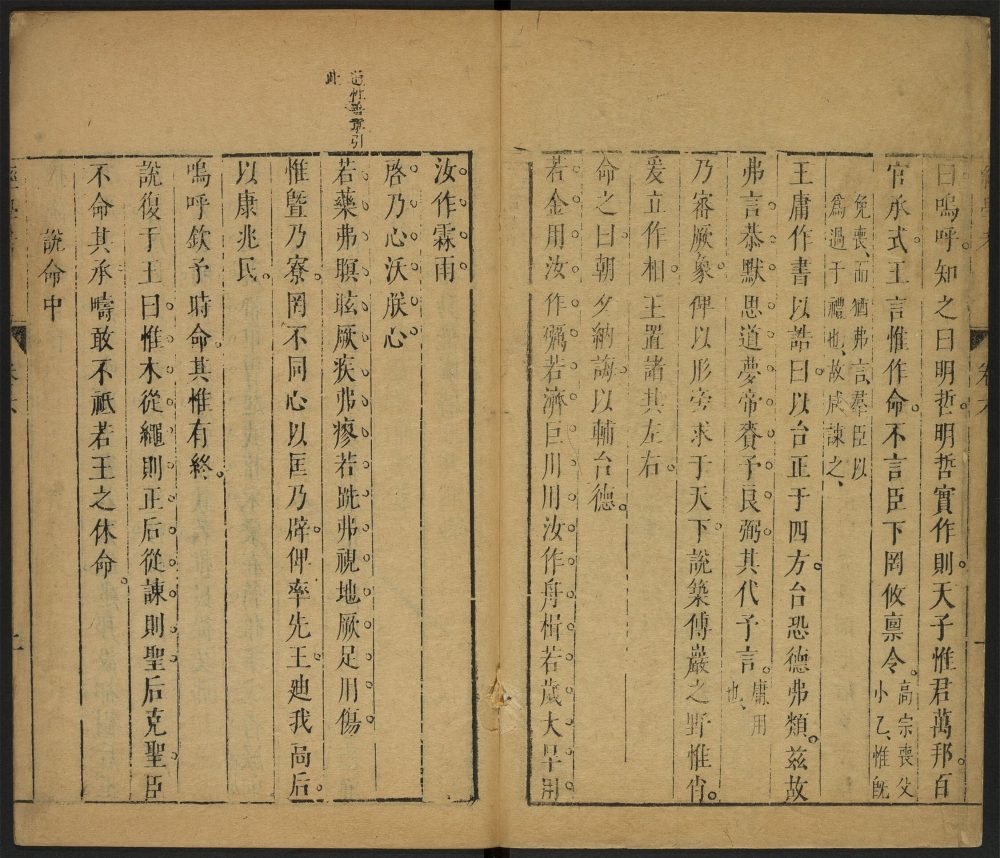 曰嗚呼知之曰明哲明哲實作則天子惟君萬邦百
官承式王言惟作命不言臣下罔攸禀令高宗喪父
小乙惟旣
免喪而猶弗言羣臣以
爲過于禮也故咸諫之
王庸作書以誥曰以台正于四方台恐德弗類茲故
弗言恭默思道夢帝賚予良弼其代予言庸用
也
乃審厥象俾以形旁求于天下說築傅巖之野惟肖
爰立作相王置諸其左右
命之曰朝夕納誨以輔台德
若金用汝作礪若濟巨川用汝作舟楫若歲大旱用
卷六
道性善章引
此
汝作霖雨
啓乃心沃朕心
若藥弗瞑眩厥疾弗瘳若跣弗視地厥足用傷
惟曁乃寮罔不同心以匡乃辟俾率先王廸我高后
以康兆民
嗚呼欽予時命其惟有終
說復于王曰惟木從繩則正后從諫則聖后克聖臣
不命其承疇敢不祗若王之休命
說命中